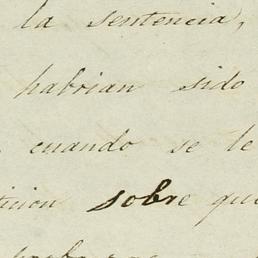 la sentencia,
habrian sido
cuando se le
ticion sobre que